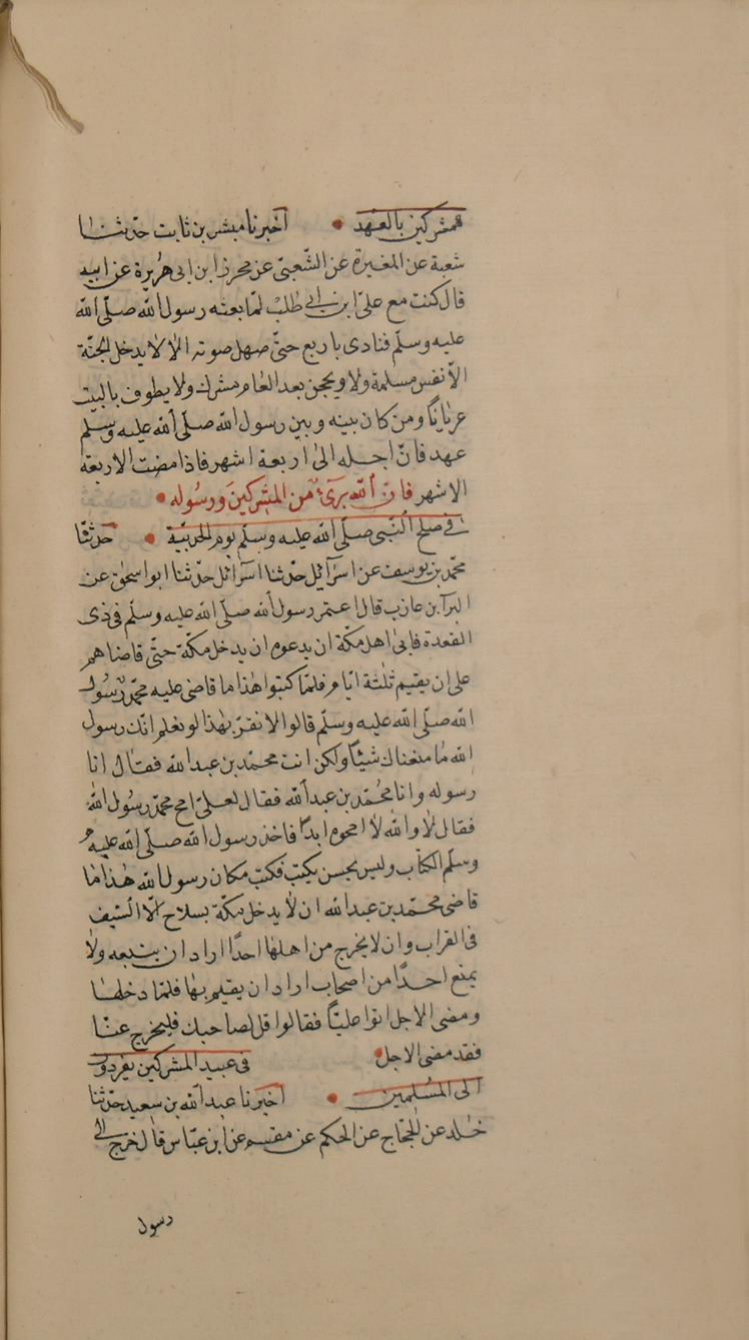 للمشركين بالعهد • اخبرنا مبشر بن ثابت حدّثنا
شعبة عن المغيرة عن الشّعبىّ عن محرر ابن ابى هُرَيرة عن ابيه
قال كنت مع علىّ ابن ابى طٰلب لمّا بعثه رسول الله صلّى الله
عليه وسلّم فنادى باربع حتّى صهل صوته الا لا يدخل الجنّة
الّا نفس مسلمة ولا ويحجن بعد العام مشرك ولا يطوف بالبيت
عريانًا ومن كان بينه وبين رسول الله صلّى الله عليه وسلّم
عهد فانّ اجله الى اربعة اشهر فاذا مضت الاربعة
الاشهر فانّ الله برىءٌ من المشركينَ ورسُوله •
فى صلح النّبى صلّى الله عليه وسلّم يوم الحديبيّة • حدّثنا
محمّد بن يوسف عن اسرآئيل حدّثنا اسرائل حدّثنا ابو اسحٰق عن
البرآء بن عازب قال اعتمر رسول الله صلّى الله عليه وسلّم فى ذى
القعدة فابى اهل مكّة ان يدعوه ان يدخل مكّة حتّى قاضاهم
على ان يقيم ثلٰثة ايّام فلمّا كتبوا هٰذا ما قاضى عليه محمّدٌ رسُول
الله صلّى الله عليه وسلّم قالوا لا نقرّ بهٰذا لو نعلم انّك رسول
الله مٰا منعناك شيئًا ولكن انت محمّد بن عبد الله فقال انا
رسوله وانا محُمّد بن عبد الله فقال لعلىّ امح محمّد رسُول الله
فقال لا والله لا امحوه ابدًا فاخذ رسول الله صلّى الله عليه
وسلّم الكتاب وليس يحسن يكتب فكتب مكان رسول الله هٰذا مٰا
قاضى محمّد بن عبد الله ان لا يدخل مكّة بسلاح الّا السّيف
فى القراب وان لا يخرج من اهلها احدًا اراد ان يتبعه ولا
يمنع احدًا من اصحاب اراد ان يقيم بها فلمّا دخلها
ومضى الاجل اتوا عليًّا فقالوا قل لصاحبك فليخرج عنّا
فقد مضى الاجل • فى عبيد المشركين يفردون
الى المسُلمين • اخبرنا عبد الله بن سعيد حدّثنا
خٰلد عن الحجّاج عن الحكم عن مقسم عن ابن عبّاس قال خرج الى
رسول